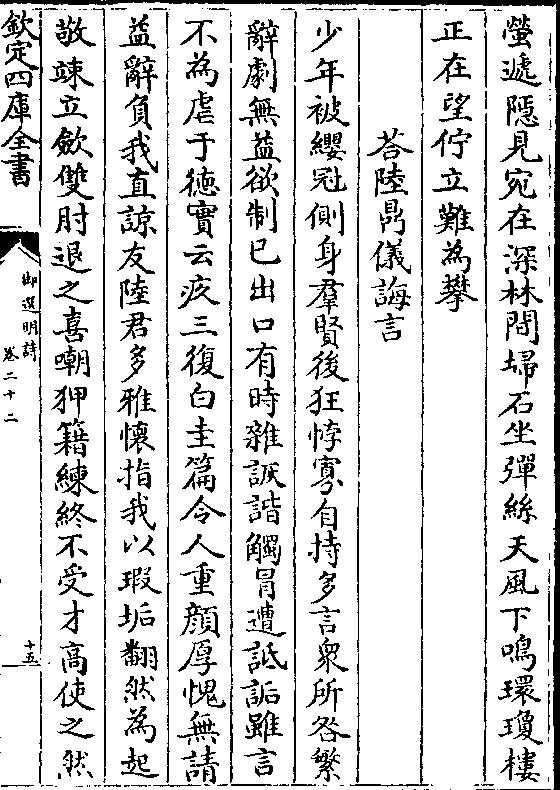 螢遞隱見宛在深林間埽石坐彈絲天風下鳴環瓊樓
正在望佇立難為攀
荅陸鼎儀誨言
少年被纓冠側身羣賢後狂悖寡自持多言衆所咎繁
辭劇無益欲制已出口有時雜詼諧觸冒遭詆詬雖言
不為虐于徳實云疚三復白圭篇令人重顔厚愧無請
益辭負我直諒友陸君多雅懷指我以瑕垢翻然為起
敬竦立斂雙肘退之喜嘲狎籍練終不受才高使之然
欽定四庫全書
御選明詩
卷二十二
十五